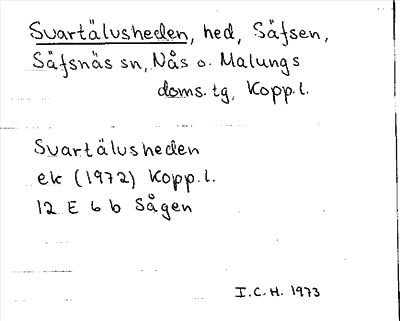 Svartälvsheden, hed, Säfsen,
Säfsnäs sn, Nås o. Malungs
doms. tg, Kopp. l.
Svartälvsheden
ek (1972) Kopp. l.
12 E 6 b Sågen
I.C.H. 1973